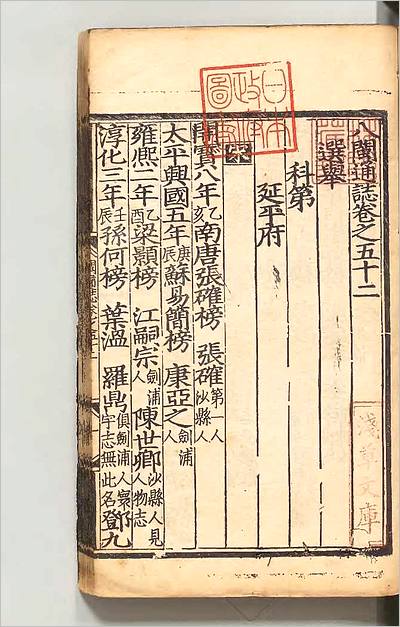 八閩通誌卷之五十二
選舉
科第
延平府
宋
開寶八年乙亥南唐張確榜 張確第一人沙縣人
太平興國五年庚辰蘇易簡榜 康亞之劍浦人
雍熙二年乙酉梁顥榜 江嗣宗劍浦人 陳世卿沙縣人見人物志
淳化三年壬辰孫何榜 葉溫 羅鼎俱劍浦人寰宇志無此名鄧九
日本政府圖書
淺草文庫